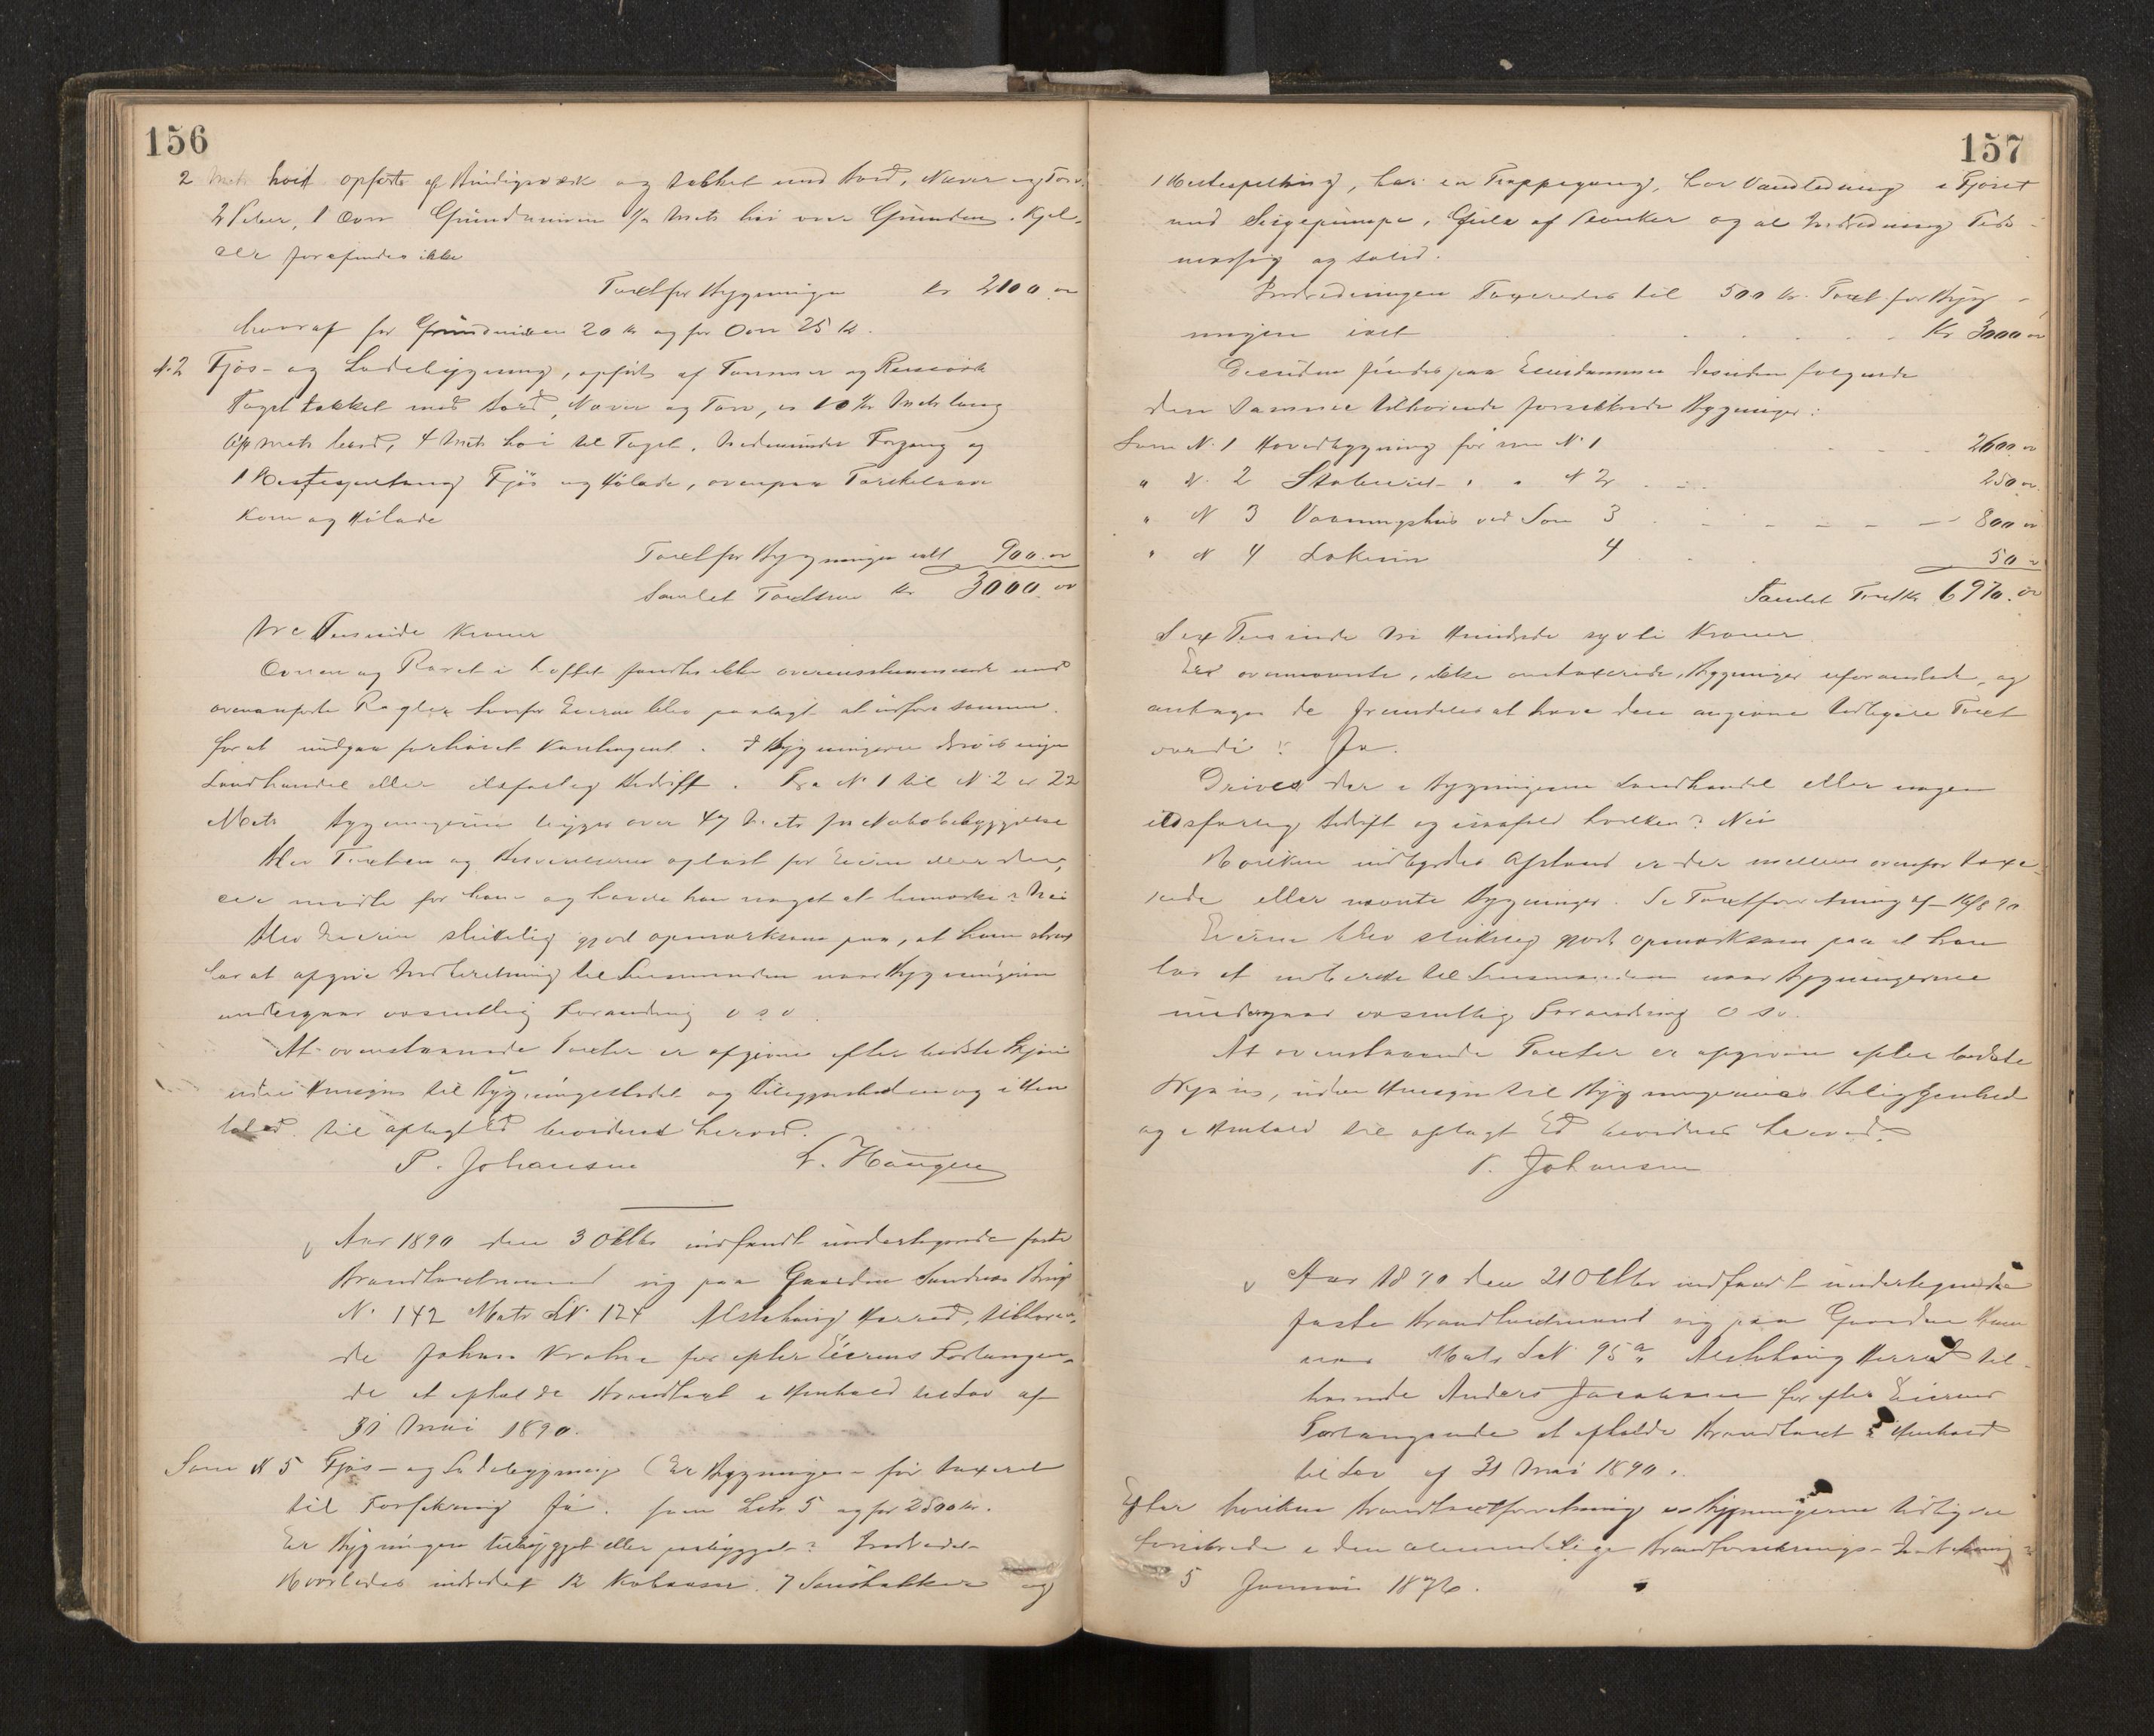 156
2 Met høit opført af Bindigsværk og tækket med Bord, Næver og Torv.
2 Peber, 1 Ovn Grundmuren 1/2 Met høi over Grunden. Kjel-
der forefindes ikke
Taxt for Bygningen Kr 2100.00
hvoraf for Grundmuren 20 Kr og for Ovn 25 Kr.
4.2 Fjøs- og Ladebygning, opført af Tømmer og Reisværk
Taget tækket med Bord, Næver og Torv, er lang
Met bred, 4 Met høi til Taget. Forgang og
1 Fjøs og Hølade, ovenpaa
Korn og Hølade
Taxt for Bygningen ialt 900.00
Samlet Taxtsum Kr 3000.00
Tre Tusinde Kroner
Ovnen og Røret i Loftet fandtes ikke overensstemmende med
ovenanførte Regler hvorfor Eieren blev paalagt at udføre samme
for at undgaa forhøiet Kontingent. I Bygningerne drives ingen
Landhandel eller ildsfarlig Bedrift. Fra N. 1 til N. 2 er 22
Met Bygningerne ligger over 47 Met fra Nabobebyggelse
Blev Taxten og Beskrivelsen oplæst for Eieren eller den,
der mødte for ham og havde han noget at bemærke? Nei
Blev Eieren skikkelig gjort opmærksom paa, at han
har at afgive Indberetning til Lensmanden naar Bygningerne
undergaar væsentlig Forandring o s v.
At ovenstaaende Taxter er afgivne efter bedste Skjøn
uden Hensyn til Bygningsstedet og Beliggenheden og i Hen
hold til aflagt Ed bevidnes herved.
P. Johansen L. Haugen
Aar 1890 den 3 Oktbr indfandt undertegnede faste
Brandtaxtmænd sig paa Gaarden Sandnes Brug
N. 142 Matr LN. 124 Alstahaug Herred, tilhøren-
de Johan for efter Eierens Forlangen-
de at afholde Brandtaxt i Henhold til Lov af
31 Mai 1890.
Som N 5 Fjøs- og Ladebygning (Er Bygningen før taxeret
til Forsikring Ja. som Litr. 5 og for 2500 kr.
Er Bygningen tilbygget eller paabygget?
Hvorledes indredet 12 Kobaase. 7 og
157
1 Hestespiltaug, har en Trappegang, har Vandledning i Fjøset
med Sugepumpe, Gulv af Planker og al Indredning
mæssig og solid.
Indredningen Taxeredes til 500 Kr. Taxt for Byg-
ningen ialt Kr 3000.00
Desuden findes paa Eiendommen desuden følgende
den samme tilhørende forsikrede Bygninger:
Som N. 1 Hovedbygning før som N. 1 2600.00
" N. 2 Stabur " " N 2 250.00
" N 3 Vaaningshus ved Søen 3 800.00
" N 4 4 50.00
Samlet Taxt Kr. 6970.00
Sex Tusinde Ni Hundrede sytti Kroner
Er ovennævnte, ikke omtaxerede, Bygninger uforandrede, og
antages de fremdeles at have den angivne tidligere Taxt
værdi? Ja.
Drives der i Bygningerne Landhandel eller nogen
ildsfarlig Bedrift og isaafald hvilken? Nei
Hvilken indbyrdes Afstand er der mellem ovenfor taxe-
rede eller nævnte Bygninger. Se Taxtforretning af 16/8 90
Eieren blev skikkelig gjort opmærksom paa at han
har at indberette til Lensmanden naar Bygningerne
undergaar væsentlig Forandring o sv.
At ovenstaaende Taxter er afgivne efter bedste
Skjøn, uden Hensyn til Bygningernes Beliggenhed
og i Henhold til aflagt Ed bevidnes herved.
P. Johansen
Aar 1890 den 21 Oktbr indfandt undertegnede
faste Brandtaxtmænd sig paa Gaarden
Matr LN. 95a Alstahaug Herred til-
hørende Anders Jacobsen for efter Eierens
Forlangende at afholde Brandtaxt i Henhold
til Lov af 31 Mai 1890.
Efter hvilken Brandtaxtforretning er Bygningerne tidligere
forsikrede i den almindelige Brandforsikrings-Indretning?
5 Januar 1876.